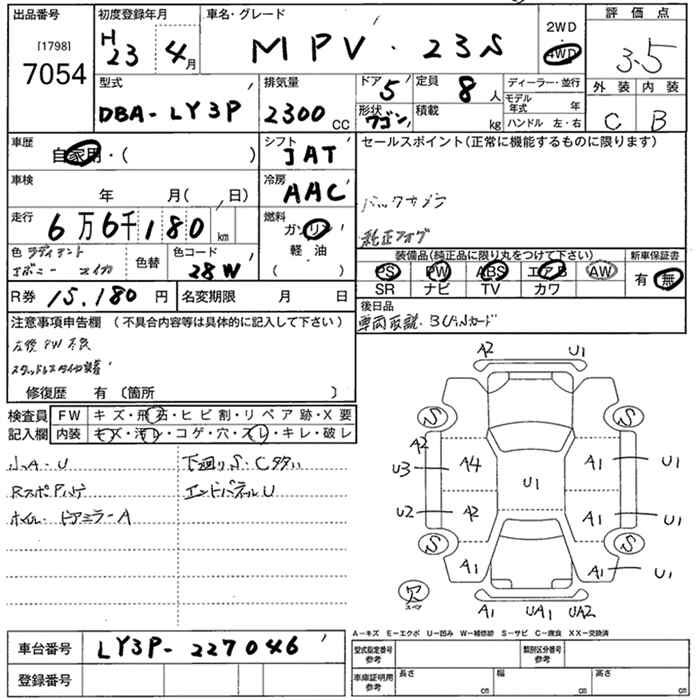 出品番号
[1798]
7054
初度登録年月
H 23年 4月
車名・グレード
MPV・23S
2WD
4WD
評価点
3.5
型式
DBA-LY3P
排気量
2300 CC
ドア 5
形状 ワゴン
定員 8 人
積載 kg
ディーラー・並行
モデル年式 年
ハンドル 左・右
外装 内装
C B
車歴
自家用・( )
シフト
IAT
セールスポイント(正常に機能するものに限ります)
バックカメラ
純正フォグ
車検
年 月( 日)
冷房
AAC
走行
6万6千180km
燃料
ガソリン
軽油
( )
色 ラディアント
エボニー マイカ
色替
色コード
28W
装備品(純正品に限り丸をつけて下さい)
PS PW ABS エアB AW
SR ナビ TV カワ
新車保証書
有・無
R券 15,180 円
名変期限 月 日
後日品
車両取説・BWINカード
注意事項申告欄 (不具合内容等は具体的に記入して下さい)
左後PW不良
スタッドレスタイヤ装着
修復歴 有( 箇所 )
検査員
記入欄
FW キズ・飛石・ヒビ割・リペア跡・X要
内装 キズ・汚れ・コゲ・穴・スレ・キレ・破レ
小A・U 下廻りS・Cタタリ
RスポAハゲ エンドパネルU
ホイル・ドアミラーA
A2 U1
S S
A2
U3 A4 A1 U1
U1
U2 A2 A1 U1
S S
A1 A1 U1
欠
スペア
A1 UA1 UA2
車台番号 LY3P-227046
登録番号
A-キズ E-エクボ U-凹み W-補修跡 S-サビ C-腐食 XX-交換済
型式指定番号
参考
類別区分番号
参考
車庫証明用
参考
長さ cm 幅 cm 高さ cm